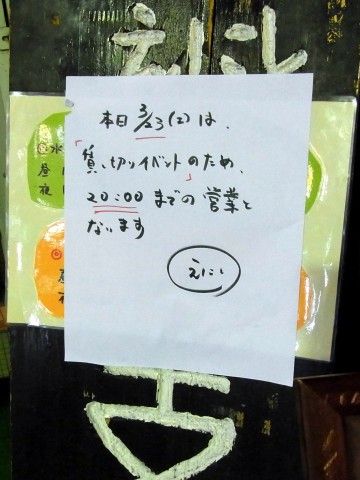 えにし
本日 3/23(土)は、
「貸し切りイベント」のため、
20:00 までの 営業と
なります
えにし
水
昼
夜